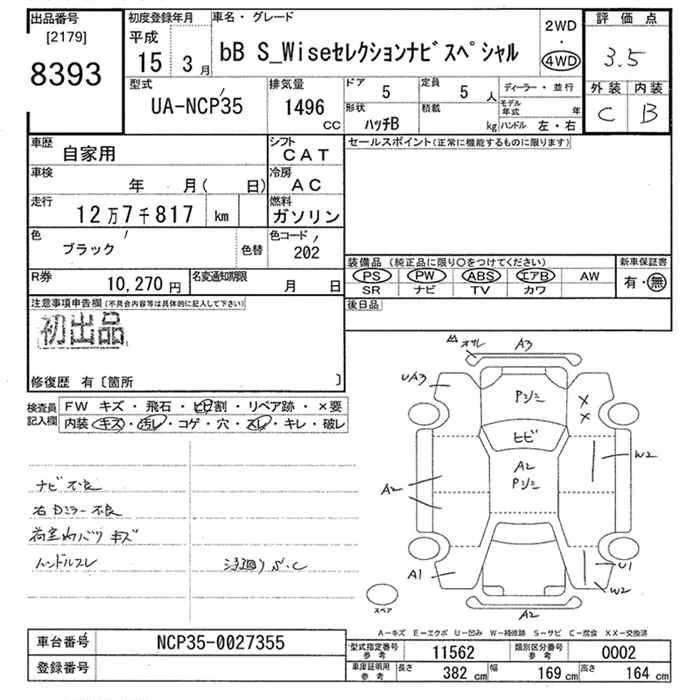 出品番号
[2179]
8393
初度登録年月
平成
15 3月
車名・グレード
bB S_Wiseセレクションナビスペシャル
2WD
・
4WD
評価点
3.5
型式
UA-NCP35
排気量
1496
CC
ドア
5
定員
5人
形状
ハッチB
積載
kg
ディーラー・並行
モデル年式
年
ハンドル 左・右
外装 内装
C B
車歴
自家用
シフト
CAT
車検
年 月( 日)
冷房
AC
走行
12万7千817 km
燃料
ガソリン
色
ブラック
色替
色コード
202
R券
10,270円
名変通知期限
月 日
セールスポイント(正常に機能するものに限ります)
装備品 (純正品に限り○をつけてください)
新車保証書
PS PW ABS エアB AW
SR ナビ TV カワ
有・無
後日品
注意事項申告欄(不具合内容等は具体的に記入して下さい)
初出品
修復歴 有〔箇所 〕
検査員記入欄
FW キズ・飛石・ヒビ割・リペア跡・×要
内装 キズ・汚レ・コゲ・穴・スレ・キレ・破レ
ナビ不良
右Dミラー不良
荷室内バリ キズ
ハンドルスレ
S・C
A3
UA3
Pジミ
×
×
ヒビ
W2
A2
Pジミ
A2
A1
U1
W2
A2
スペア
A－キズ E－エクボ U－凹み W－補修跡 S－サビ C－腐食 XX－交換済
車台番号
NCP35-0027355
登録番号
型式指定番号
参考
11562
類別区分番号
参考
0002
車庫証明用
参考
長さ
382 cm
幅
169 cm
高さ
164 cm